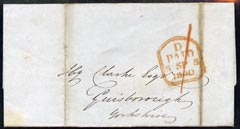 D
PAID
SP 5
1850
Hy Clarke Esq
Guisborough
Yorkshire